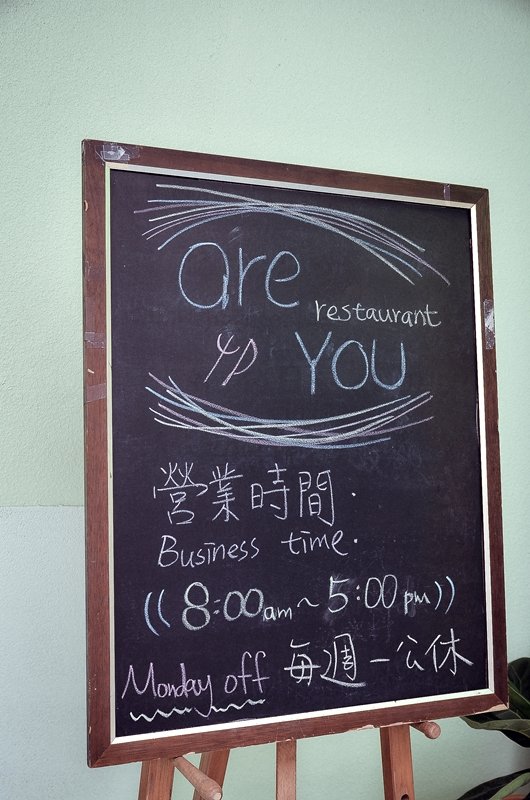 are
restaurant
YOU
營業時間.
Business time.
((8:00am~5:00pm))
Monday off 每週一公休